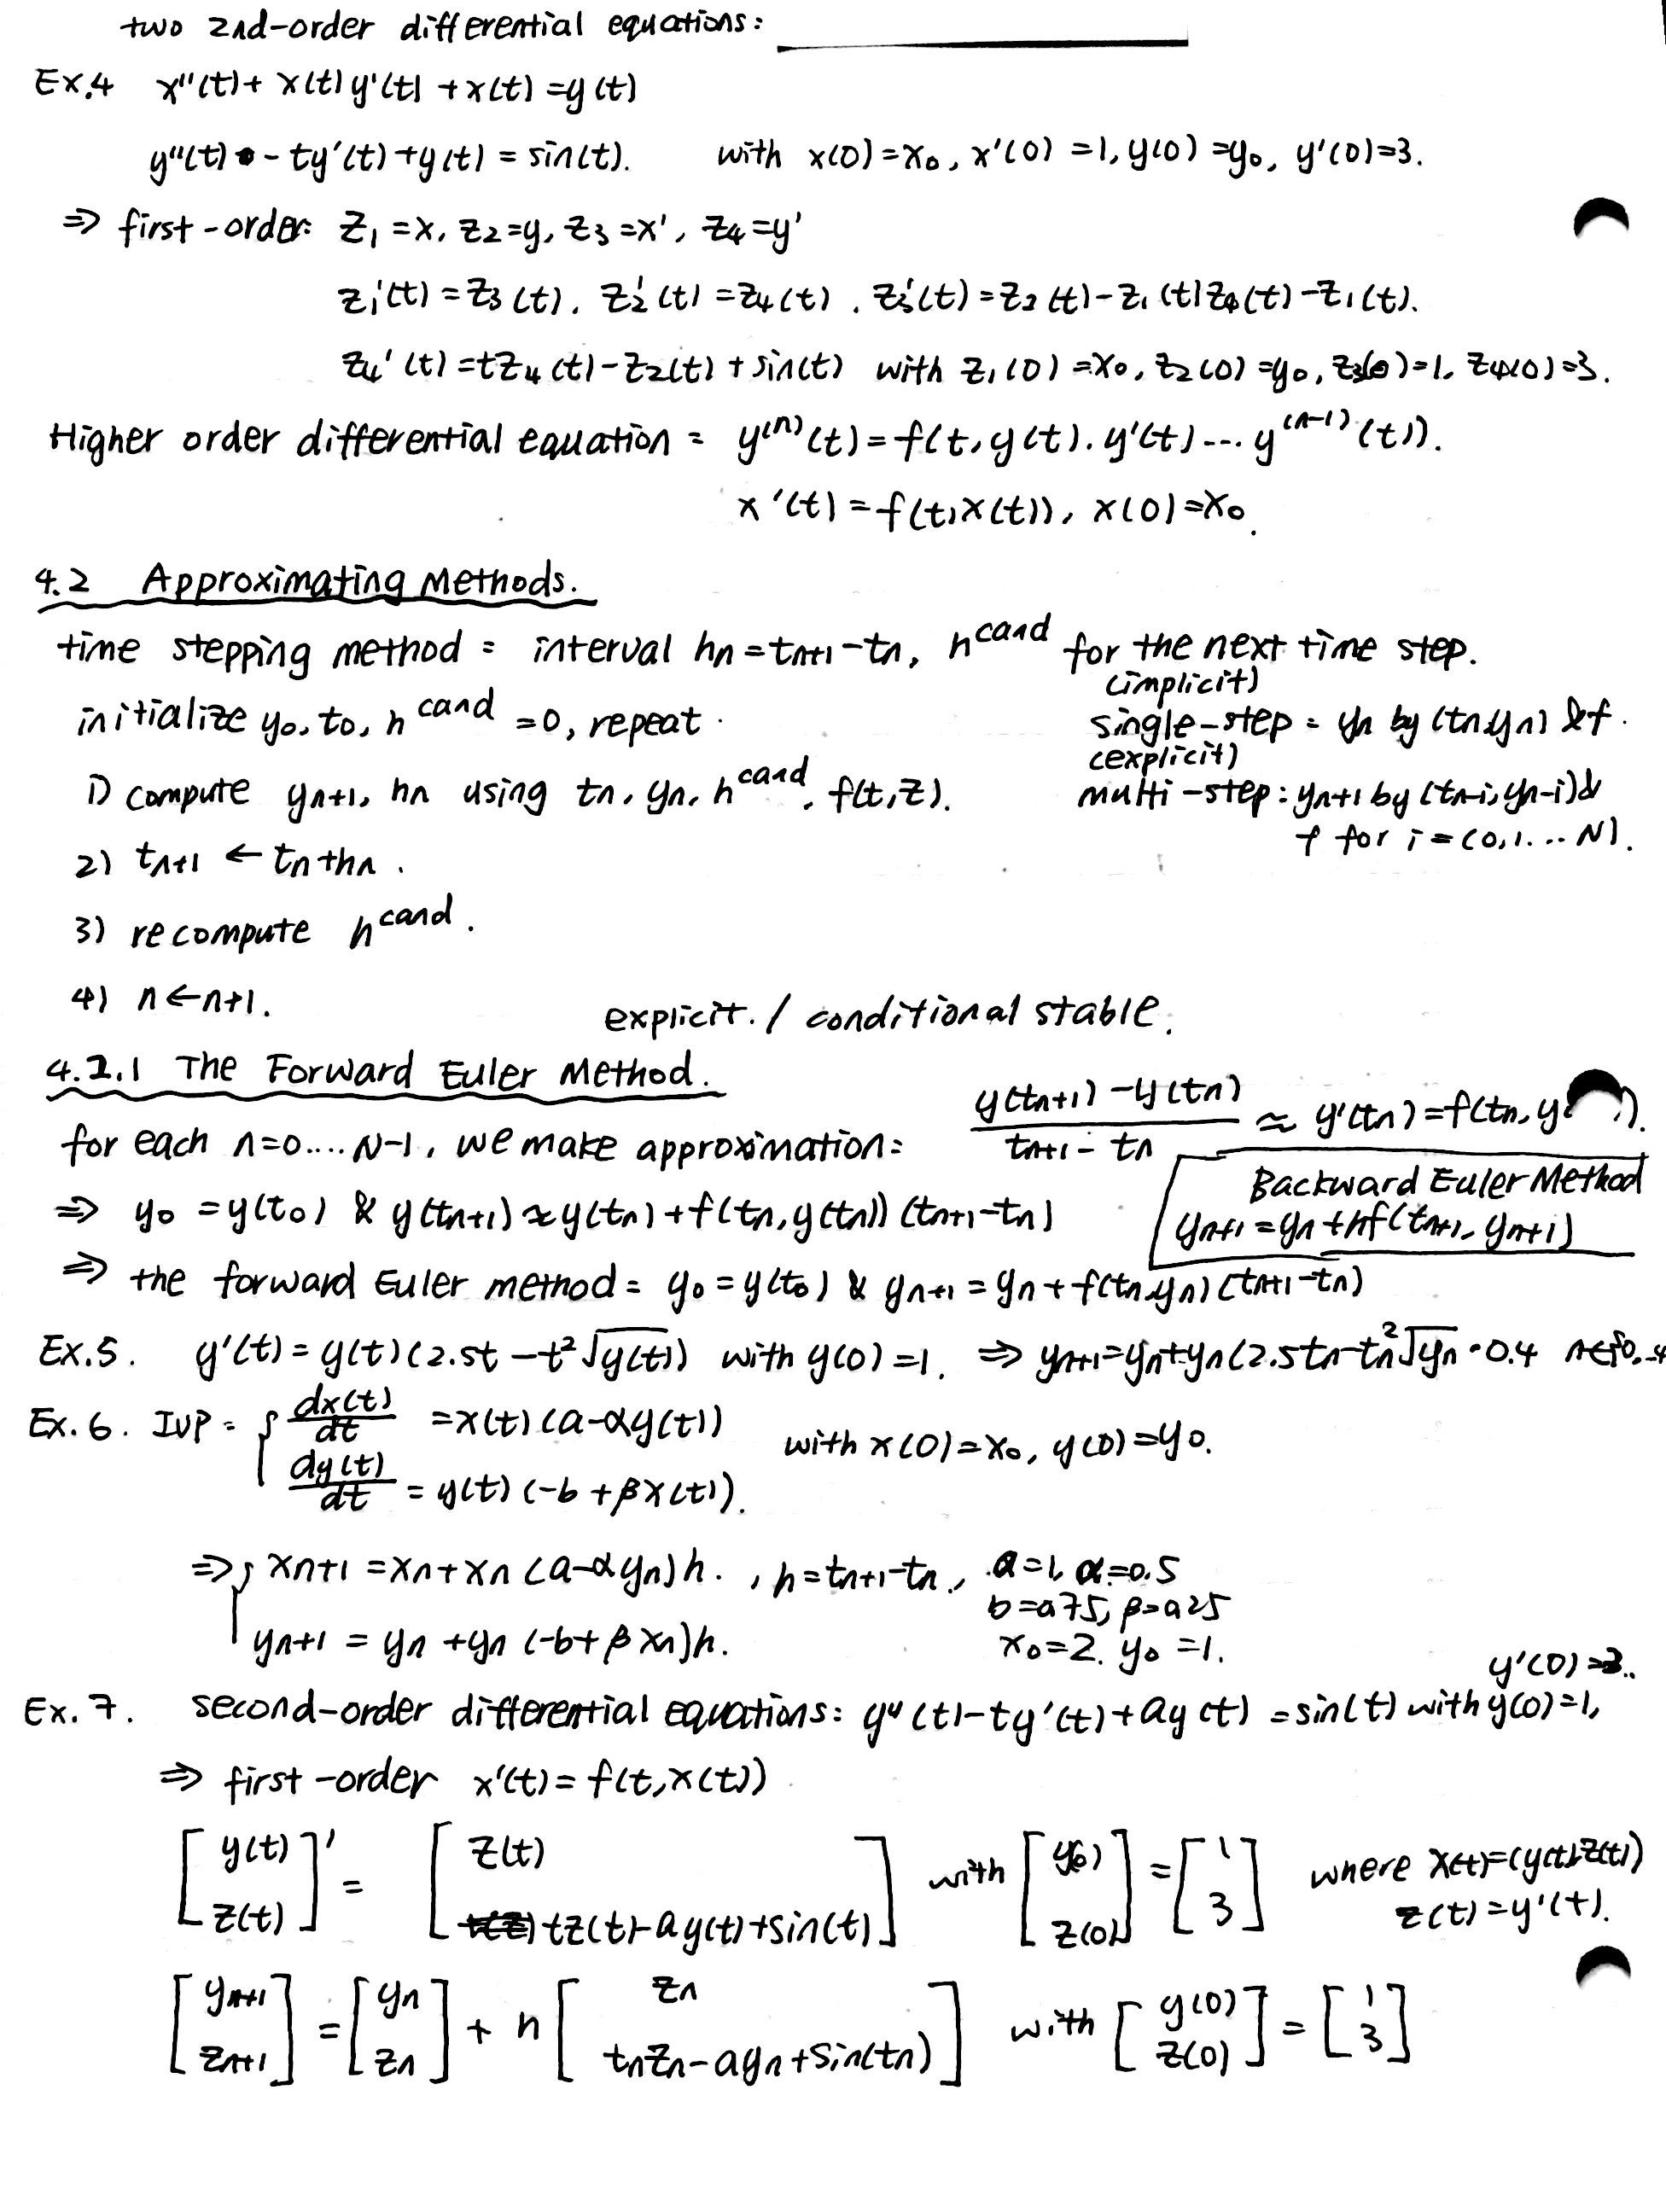 two 2nd-order differential equations:
Ex.4 x''(t)+ x(t)y'(t) +x(t) =y(t)
y''(t) - ty'(t)+y(t) = sin(t). with x(0)=x₀, x'(0) =1, y(0) =y₀, y'(0)=3.
⇒ first-order: z₁ =x, z₂=y, z₃ =x', z₄=y'
z₁'(t) =z₃(t). z₂'(t) =z₄(t). z₃'(t)=z₂(t)-z₁(t)z₄(t)-z₁(t).
z₄'(t) =tz₄(t)-z₂(t)+sin(t) with z₁(0)=x₀, z₂(0)=y₀, z₃(0)=1, z₄(0)=3.
Higher order differential equation = y⁽ⁿ⁾(t)=f(t,y(t).y'(t)...y⁽ⁿ⁻¹⁾(t)).
x'(t)=f(t,x(t)), x(0)=x₀.
4.2 Approximating Methods.
time stepping method = interval hn=tn+1-tn, h^cand for the next time step.
initialize y₀, t₀, h^cand =0, repeat.
(implicit)
single-step = yn by (tn,yn) & f.
(explicit)
1) compute yn+1, hn using tn, yn, h^cand, f(t,z).
multi-step: yn+1 by (tn-i, yn-i) &
f for i=(0,1...N).
2) tn+1 ← tn+hn.
3) recompute h^cand.
4) n←n+1.
explicit. / conditional stable.
4.2.1 The Forward Euler Method.
for each n=0....N-1, we make approximation: (y(tn+1)-y(tn))/(tn+1-tn) ≈ y'(tn)=f(tn, y ).
⇒ y₀ =y(t₀) & y(tn+1)≈y(tn)+f(tn,y(tn))(tn+1-tn)
Backward Euler Method
yn+1=yn+hf(tn+1, yn+1)
⇒ the forward Euler method = y₀=y(t₀) & yn+1=yn+f(tn,yn)(tn+1-tn)
Ex.5. y'(t)=y(t)(2.5t-t²√y(t)) with y(0)=1. ⇒ yn+1=yn+yn(2.5tn-tn²√yn ·0.4 n∈{0,..4
Ex.6. IVP = { dx(t)/dt =x(t)(a-αy(t))
with x(0)=x₀, y(0)=y₀.
dy(t)/dt = y(t)(-b+βx(t)).
⇒ { xn+1 =xn+xn(a-αyn)h. , h=tn+1-tn, a=1, α=0.5
b=0.75, β=0.25
yn+1 = yn+yn(-b+βxn)h.
x₀=2. y₀=1.
y'(0)=3..
Ex.7. second-order differential equations: y''(t)-ty'(t)+ay(t) =sin(t) with y(0)=1,
⇒ first-order x'(t)=f(t,x(t))
[y(t) z(t)]' = [z(t) tz(t)-ay(t)+sin(t)] with [y(0) z(0)] = [1 3] where x(t)=(y(t),z(t))
z(t)=y'(t).
[yn+1 zn+1] = [yn zn] + h [zn tnzn-ayn+sin(tn)] with [y(0) z(0)] = [1 3]